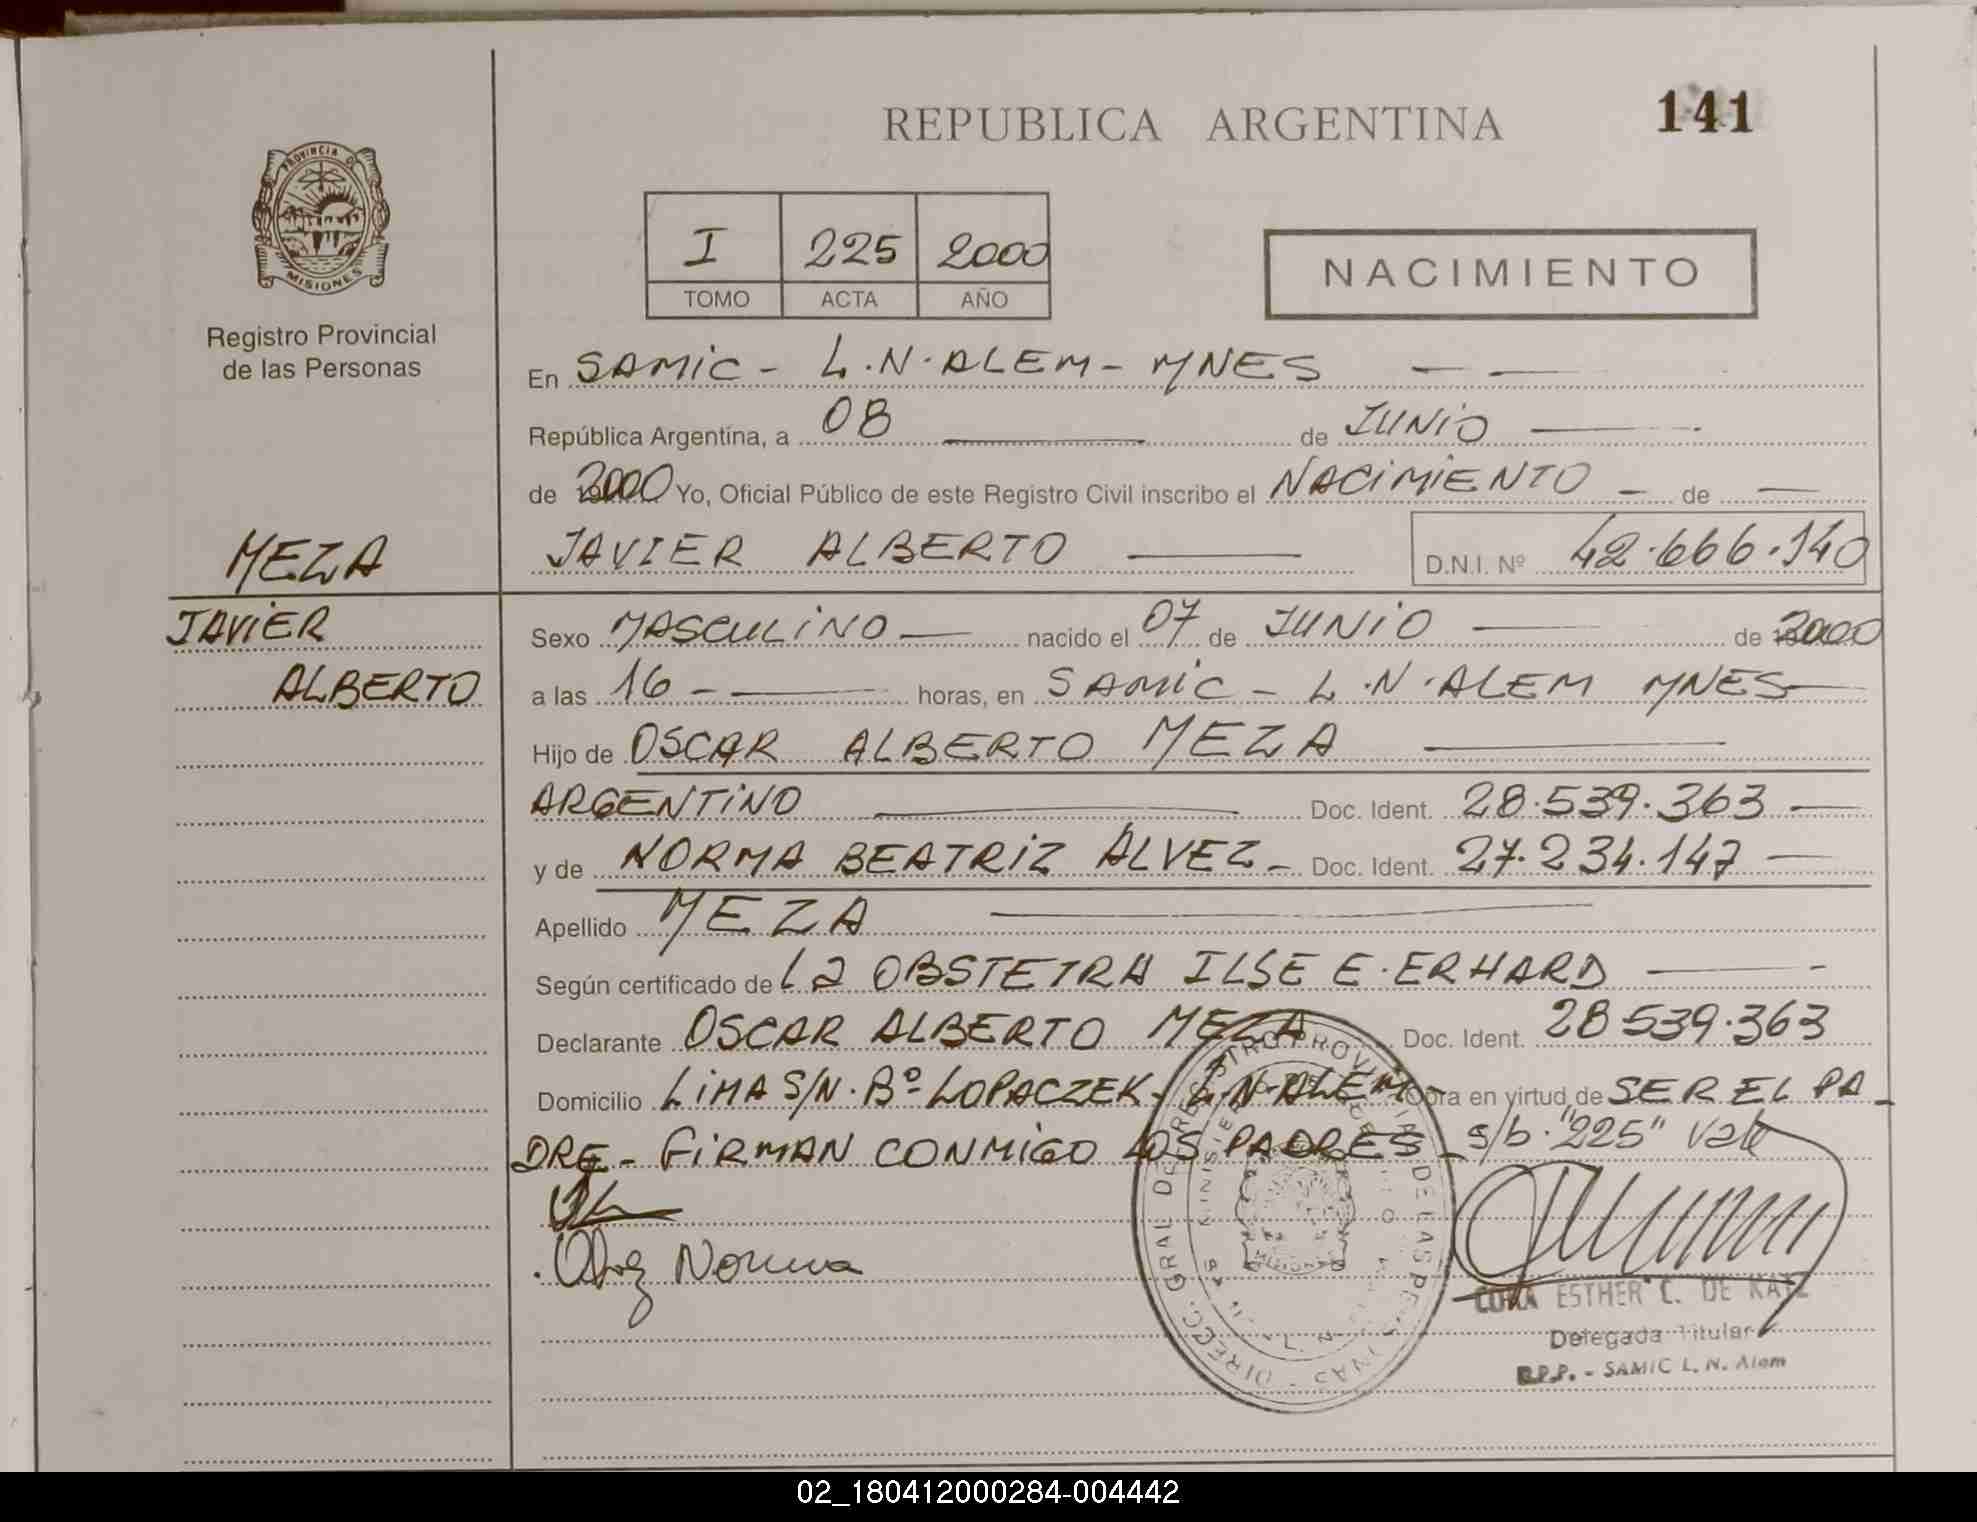 REPUBLICA ARGENTINA
141
PROVINCIA DE
MISIONES
Registro Provincial
de las Personas
I 225 2000
TOMO ACTA AÑO
NACIMIENTO
En SAMIC - L.N. ALEM - MNES
República Argentina, a 08 de JUNIO
de 2000 Yo, Oficial Público de este Registro Civil inscribo el NACIMIENTO - de
JAVIER ALBERTO D.N.I. Nº 42.666.140
MEZA
JAVIER
ALBERTO
Sexo MASCULINO nacido el 07 de JUNIO de 2000
a las 16 - horas, en SAMIC - L.N. ALEM MNES
Hijo de OSCAR ALBERTO MEZA
ARGENTINO Doc. Ident. 28.539.363
y de NORMA BEATRIZ ALVEZ - Doc. Ident. 27.234.147
Apellido MEZA
Según certificado de La OBSTETRA ILSE E. ERHARD
Declarante OSCAR ALBERTO MEZA Doc. Ident. 28 539.363
Domicilio LIMA S/N. Bº LOPACZEK - L.N. ALEM Obra en virtud de SER EL PA_
DRE - FIRMAN CONMIGO LOS PADRES - s/b. "225" Vale
Norma
CORA ESTHER C. DE KATZ
Delegada Titular
R.P.P. - SAMIC L. N. Alem
02_180412000284-004442